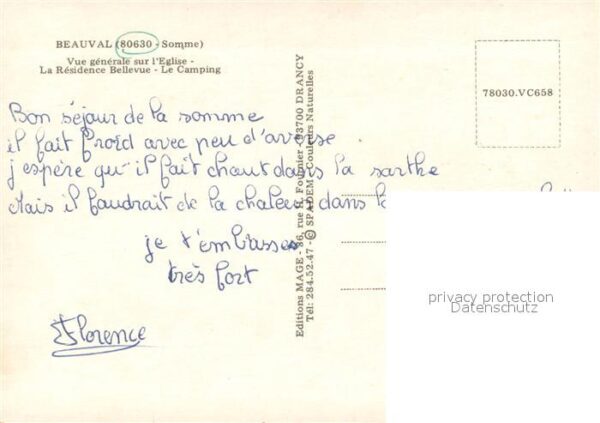 BEAUVAL (80630 - Somme)
Vue générale sur l'Eglise -
La Résidence Bellevue - Le Camping
78030.VC658
Bon séjour de la somme
il fait froid avec peu d'averse
j'espère qu'il fait chaut dans la sarthe
Mais il faudrait de la chaleur dans la
je t'embrasse
très fort
Florence
Editions MAGE - 86, rue H. Fournier - 93700 DRANCY
Tél: 284.52.47 - © SPADEM - Couleurs Naturelles
privacy protection
Datenschutz